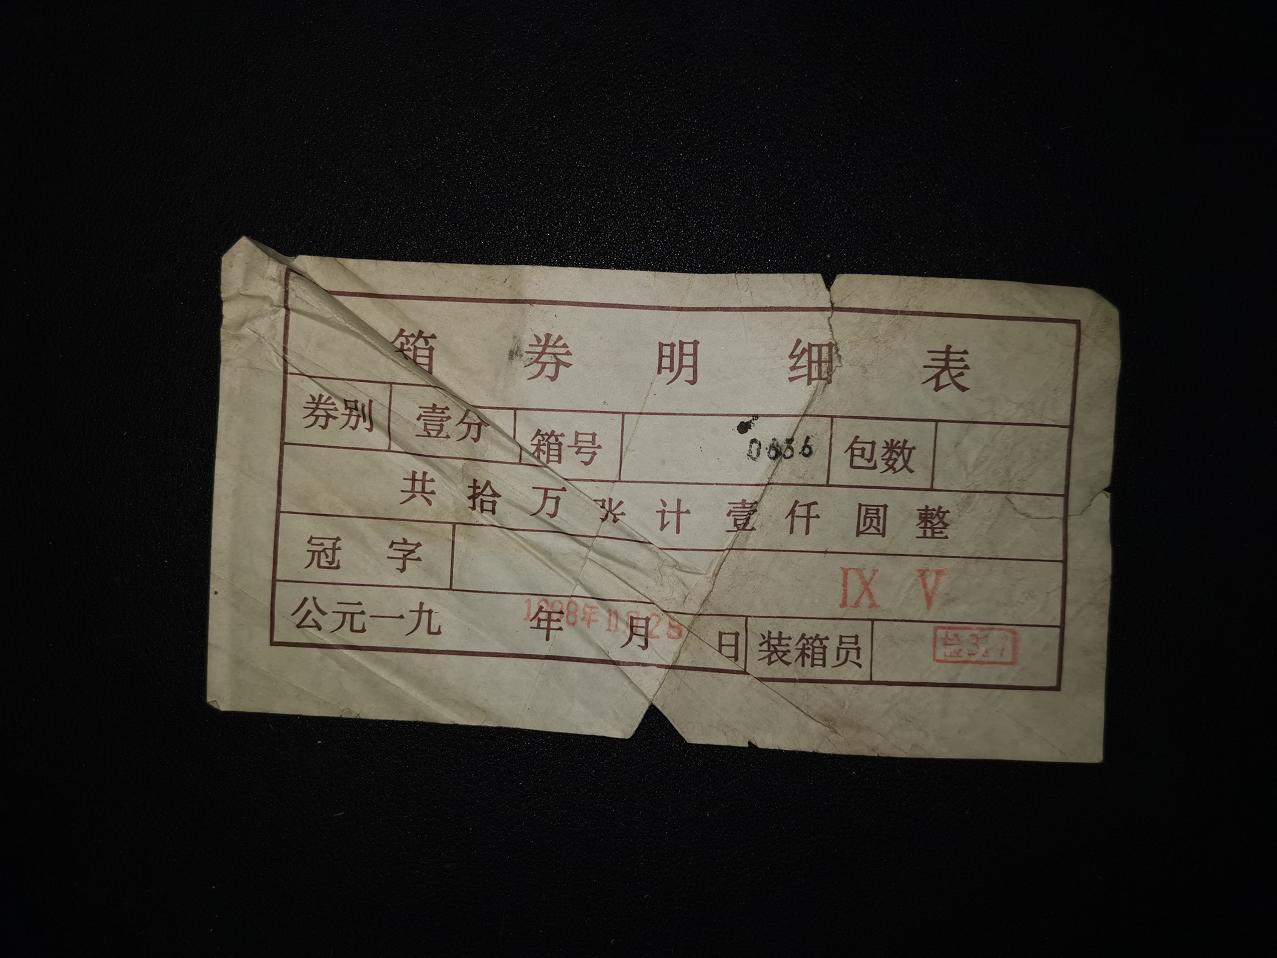 箱券明细表
券别 壹分 箱号 0636 包数
共拾万张计壹仟圆整
冠字 IX V
公元一九 年 月 日 1998年11月25 装箱员